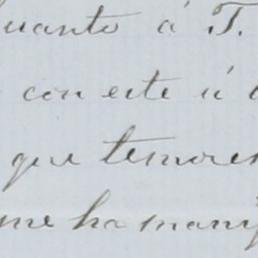 uanto á T.
con este ú
que temores
me ha manif